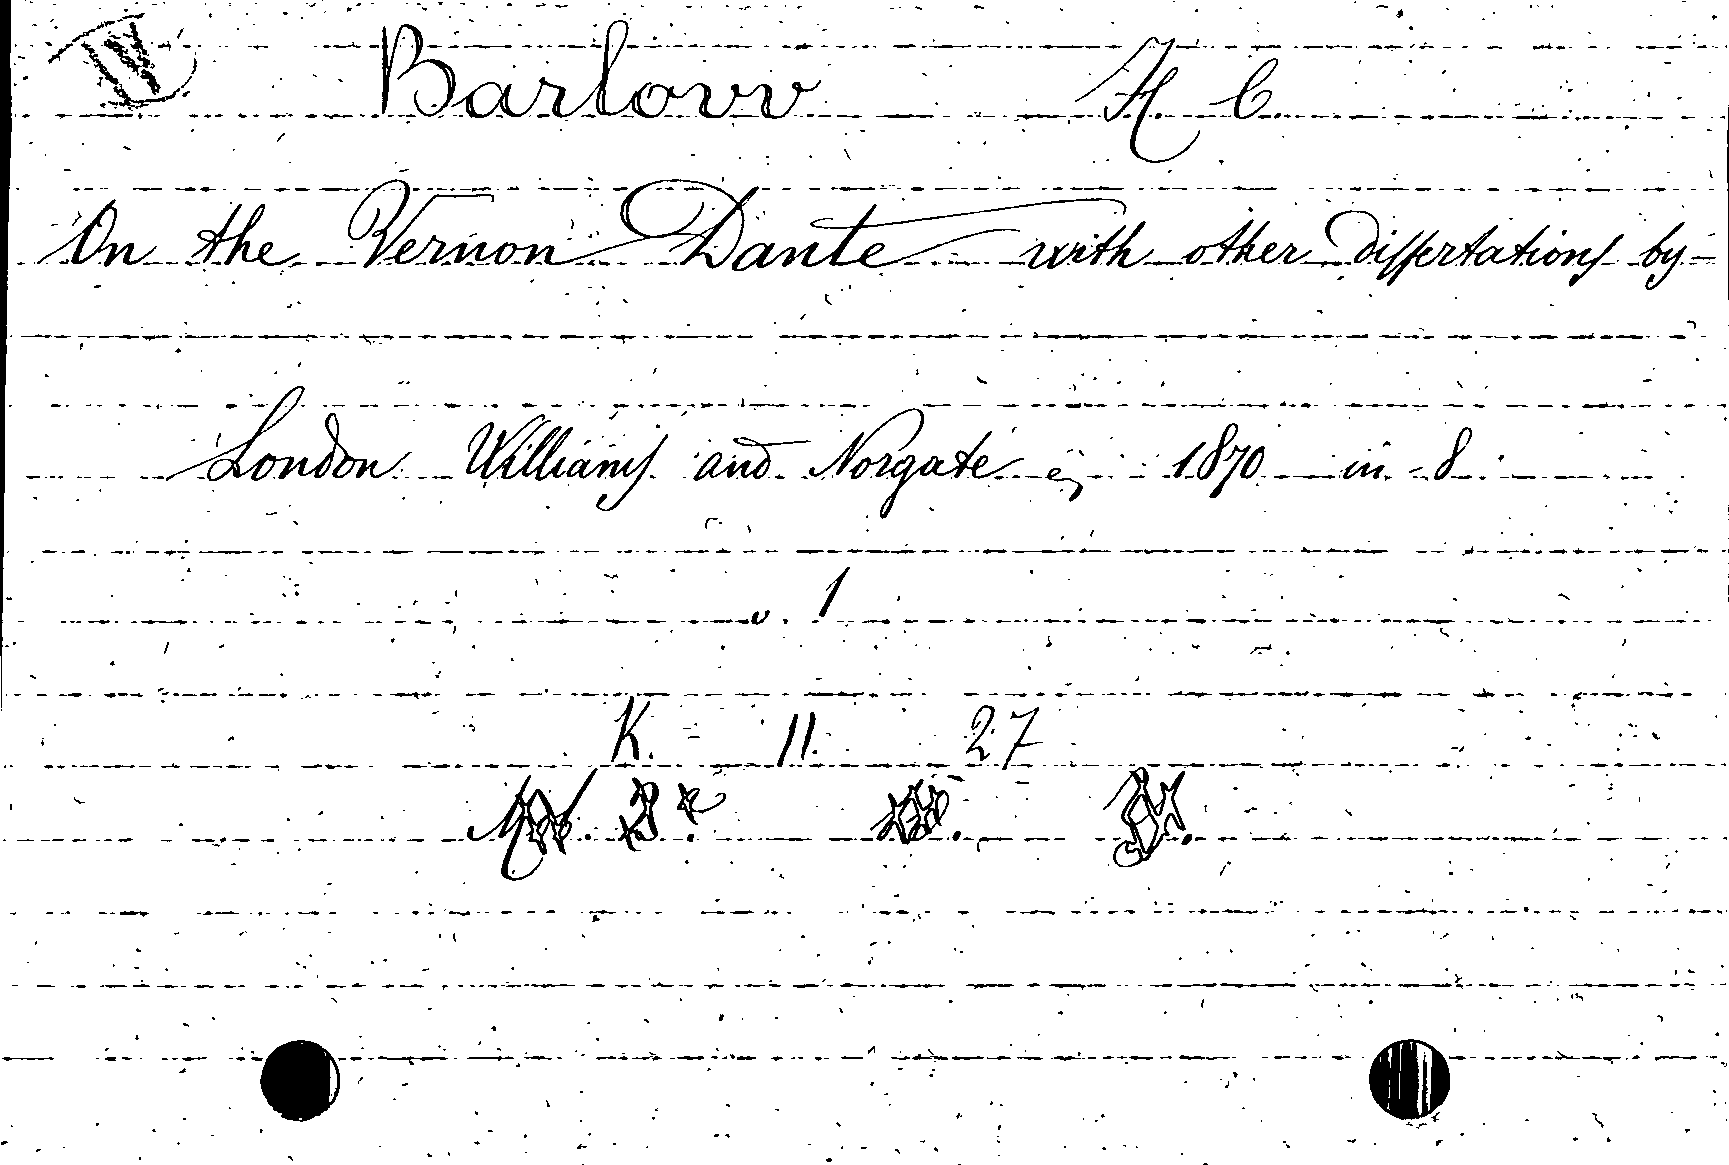 Barlovv H. C.
On the Vernon Dante with other Dissertations by—
London Williams and Norgate 1870 in 8
v. 1
K. 11. 27